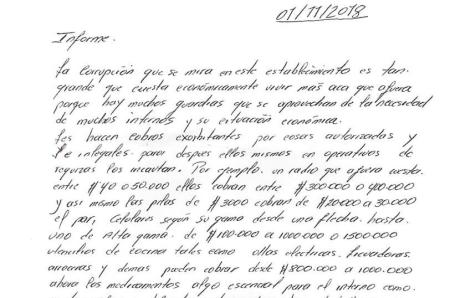 01/11/2018
Informe.
La Corrupción que se mira en este establecimiento es tan
grande que cuesta económicamente vivir mas aca que afuera
porque hay muchos guardias que se aprovechan de la necesidad
de muchos internos y su situación económica.
Les hacen cobros exorbitantes por cosas autorizadas y
ilegales para despues ellos mismos en operativos de
requizas los incautan. Por ejemplo. un radio que afuera cuesta
entre $40 o 50.000 ellos cobran entre $300000 o 400000
y asi mismo las pilas de $3000 cobran de $20000 a 30000
el par, Celulares según su gama desde una flecha. hasta
uno de Alta gama. de $100.000 a 1000000 o 1500000
utencilios de cocina tales como ollas electricas,
arroceras y demas pueden cobrar desde $800.000 a 1000.000
ahora los medicamentos algo escencial para el interno como.